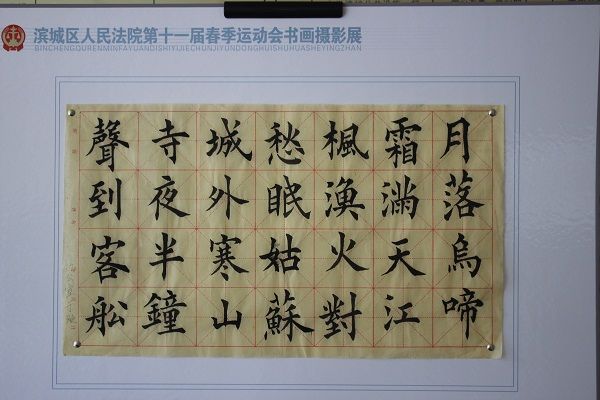 滨城区人民法院第十一届春季运动会书画摄影展
BINCHENGQURENMINFAYUANDISHIYIJIECHUNJIYUNDONGHUISHUHUASHEYINGZHAN
月落烏啼
霜滿天江
楓漁火對
愁眠姑蘇
城外寒山
寺夜半鐘
聲到客船